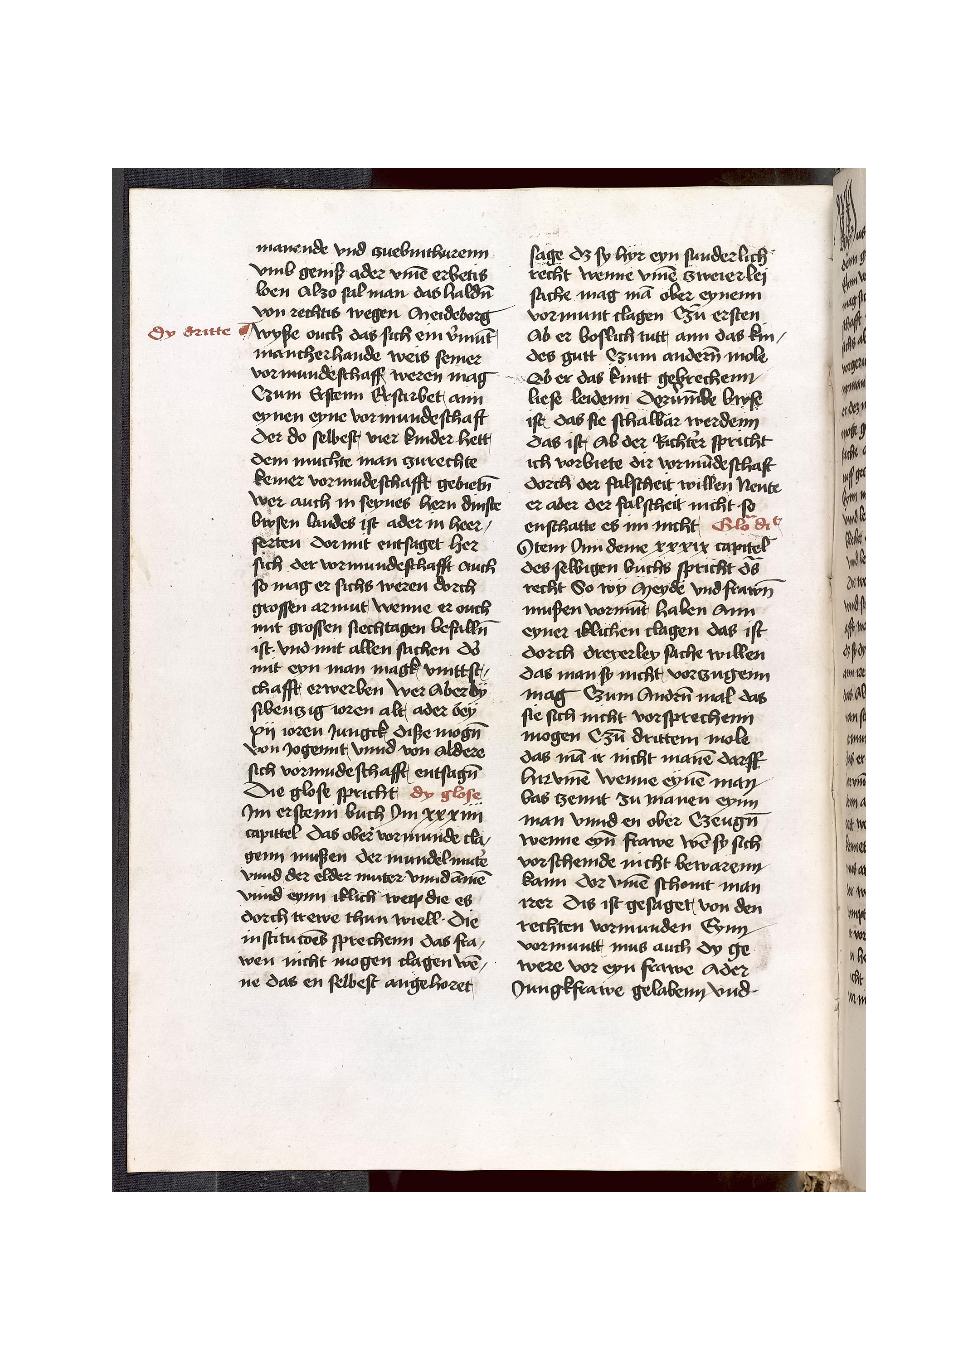 manende vnd zuebinthurenn
vmb geniß ader vm̄e erbetis
lven Alzo sal man das haldn̄
von rechtis wegen Meideborg
dy dritte
wyße ouch das sich ein v̄mūt
mancherhande weis seiner
vormundeschaff weren mag
Czum Ersten Erstirbet ann
eynen eyne vormundeschaft
Der do selbest vier kinder hett
dem muchte man zurechte
keiner vormundeschafft gebietn̄
wer auch in seynes hern dinste
bwsen landes ist ader in heer/
ferten dormit entsaget her
sich der vormundeschafft Auch
so mag er sichs weren dorch
grossen armut wenne er ouch
mit grossen siechtagen befalln̄
ist vnd mit allen sachen Do
mit eyn man magk vnttst/
chafft erwerben wer Aber dy
sibenzig ioren alt ader bey
xij ioren Jungck diße mogn̄
von Jogennt vnnd von Aldere
sich vormudeschafft entsagn̄
Die glose spricht dy glose
Im erstenn buch Im xxxiiii
capittel Das ober vormunde cla/
genn mußen Der mundel muter
vnnd der elder muter vnnd ām̄e
vnnd eynn iklich weip die es
dorch trewe thun wiell Die
institutōes sprechenn das fra/
wen nicht mogen clagen wē/
ne das en selbest angehoret
sage dz sy hyr eyn sunderlich
recht wenne vm̄e zweierlei
sache mag mā ober eynenn
vormunt clagen Czū ersten
Ab er boslich tutt ann das kin/
des gutt Czum andern̄ mole
Ab er das kintt gebrechenn
liese leidenn Dorūmbe bwse
ist das sie schalbar werdenn
das ist Ab der Richter spricht
ich vorbiete dir vormūdeschaft
dorch der falscheit willen Nente
er aber der falscheit nicht so
enschatte es im nicht Glo dit
Item Inn deme xxxix capitel
des selbigen buchs spricht d̄s
recht So wy Meyde vnd frawn̄
mußen vormūt haben Ann
eyner iklichen clagen das ist
dorch dreyerley sache willen
das man sy nicht vorzugenn
mag Czum Andrn̄ mal das
sie sich nicht vorsprechenn
mogen Czū drittem mole
das mā ir nicht manē darff
hirvm̄e wenne eynen man
bas zemt zu manen eynn
man vnnd en ober Czeugn̄
wenne eyn̄ frawe wē sy sich
vorscheinde nicht bewarenn
kann Dor vm̄e schonit man
irer Dis ist gesaget von den
rechten vormunden Eynn
vormuntt mus auch dy ge
were vor eyn frawe Ader
Jungkfrawe gelabenn vnd